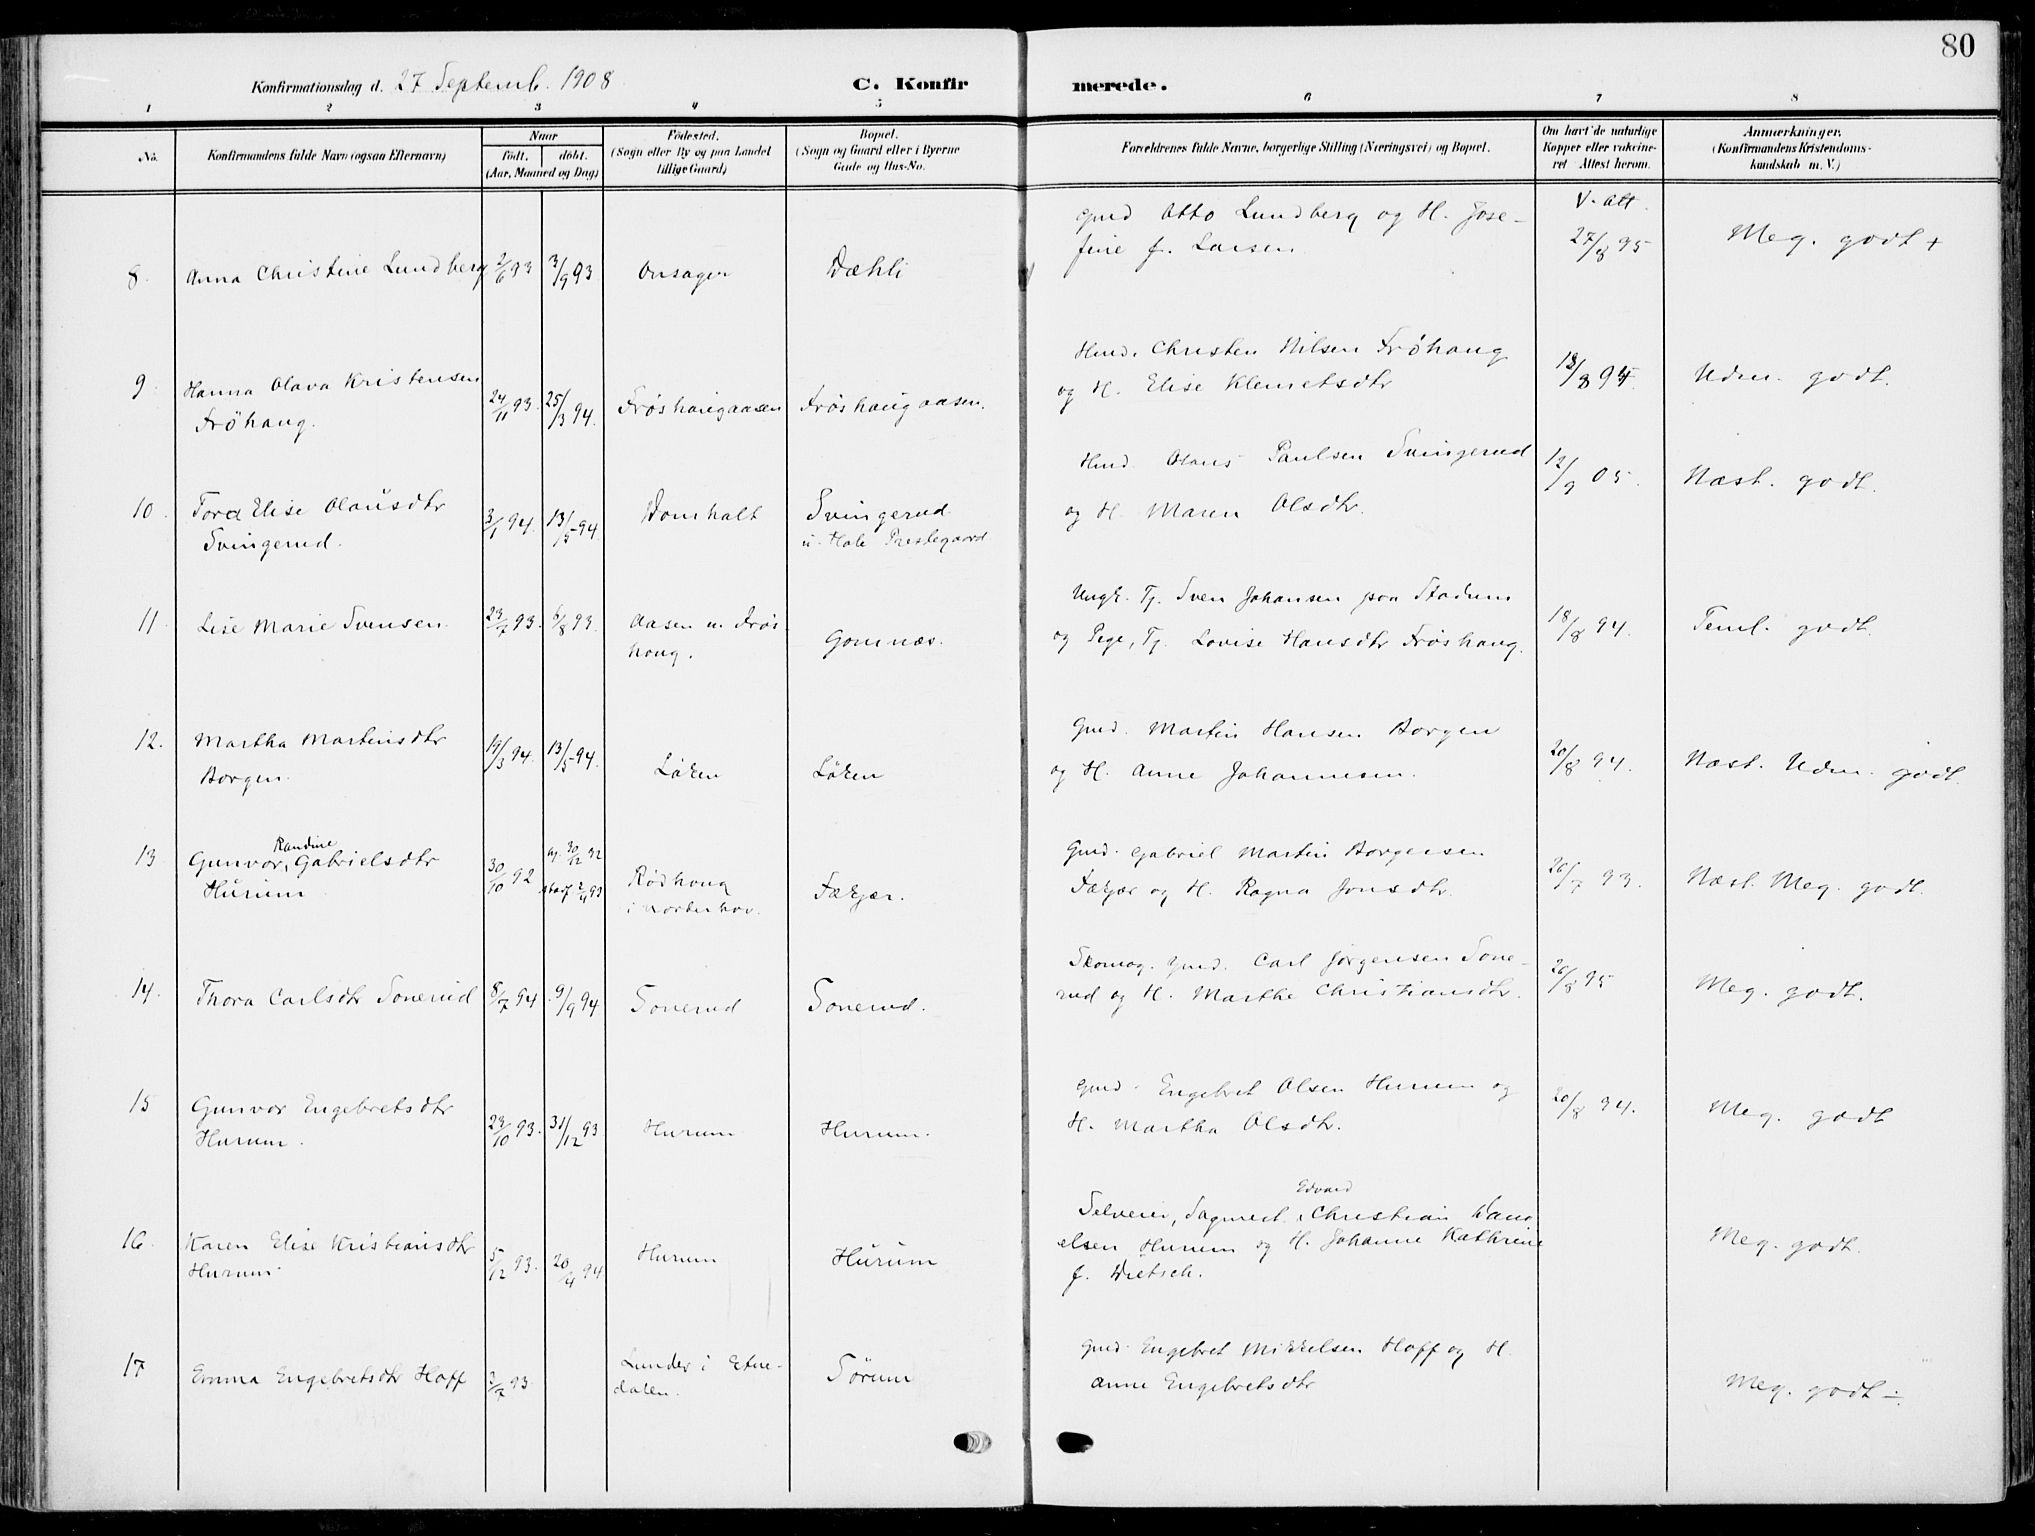 80
Konfirmationsdag d. 27 Septemb. 1908
C. Konfir
merede.
1 2 3 4 5 6 7 8
No.
Konfirmandens fulde Navn (ogsaa Efternavn)
Naar
födt. döbt.
(Aar, Maaned og Dag)
Födested.
(Sogn eller By og paa Landet
tillige Gaard)
Bopæl.
(Sogn og Gaard eller i Byerne
Gade og Hus-No.
Forældrenes fulde Navne, borgerlige Stilling (Næringsvei) og Bopæl.
Om havt de naturlige
Kopper eller vakcine-
ret Attest herom.
Anmærkninger.
(Konfirmandens Kristendoms-
kundskab m. V.)
Gmd Otto Lundberg og H. Jose-
fine f. Larsen
V. Att.
27/8 95
Meg. godt +
8. Anna Christine Lundberg 2/6 93 3/9 93 Onsager Dæhli
Hmd. Christen Nilsen Fröhaug
og H. Elise Klemetsdtr
18/8 95
Udm. godt.
9. Hanna Olava Kristensen
Fröhaug.
24/11 93. 25/3 94. Fröshaugaasen Fröshaugaasen.
Hmd. Olaus Paulsen Svingerud
og H. Maren Olsdtr.
12/9 05.
Næst. godt.
10. Tora Elise Olausdtr
Svingerud.
3/1 94. 13/5 94 Domholt Svingerud
u. Hole Prestegaard
Ungk. Tj. Sven Johansen paa Stadum
og Pige, Tj. Lovise Hansdtr Fröshaug.
18/8 94.
Teml. godt.
11. Lise Marie Svensen.
23/7 93. 6/8 93. Aasen u. Frös-
haug.
Gomnæs.
12. Martha Martinsdtr
Borgen.
19/3 94. 13/5 94. Löken Löken
Gmd. Martin Hansen Borgen
og H. Anne Johannesen.
20/8 94.
Næst. Udm. godt.
13. Gunvor, Randine Gabrielsdtr
Hurum
30/10 92 30/12 92
2/4 93
Rödhoug
i Norderhov.
Fækjær.
Gmd. Gabriel Martin Borgersen
Fækjær og H. Ragna Jonsdtr.
26/7 93.
Næst. Meg. godt.
14. Thora Carlsdtr Sonerud 8/7 94 9/9 94 Sonerud Sonerud.
Skomag. Gmd. Carl Jørgensen Sone-
rud og H. Marthe Christiansdtr.
26/8 95
Meg. godt.
15 Gunvor Engebretsdtr
Hurum.
23/10 93. 31/12 93 Hurum Hurum.
Gmd. Engebret Olsen Hurum og
H. Martha Olsdtr.
20/8 94.
Meg. godt
16. Karen Elise Kristiansdtr
Hurum
5/12 93. 20/4 94 Hurum Hurum
Edvard
Selveier, Sagmest. Christian Dani-
elsen Hurum og H. Johanne Kathrine
f. Dietsch.
Meg. godt.
17 Emma Engebretsdtr Hoff 3/7 93
Lunder i Etne-
dalen.
Sörum
Gmd. Engebret Mikkelsen Hoff og H.
Anne Engebretsdtr
Meg. godt ÷.